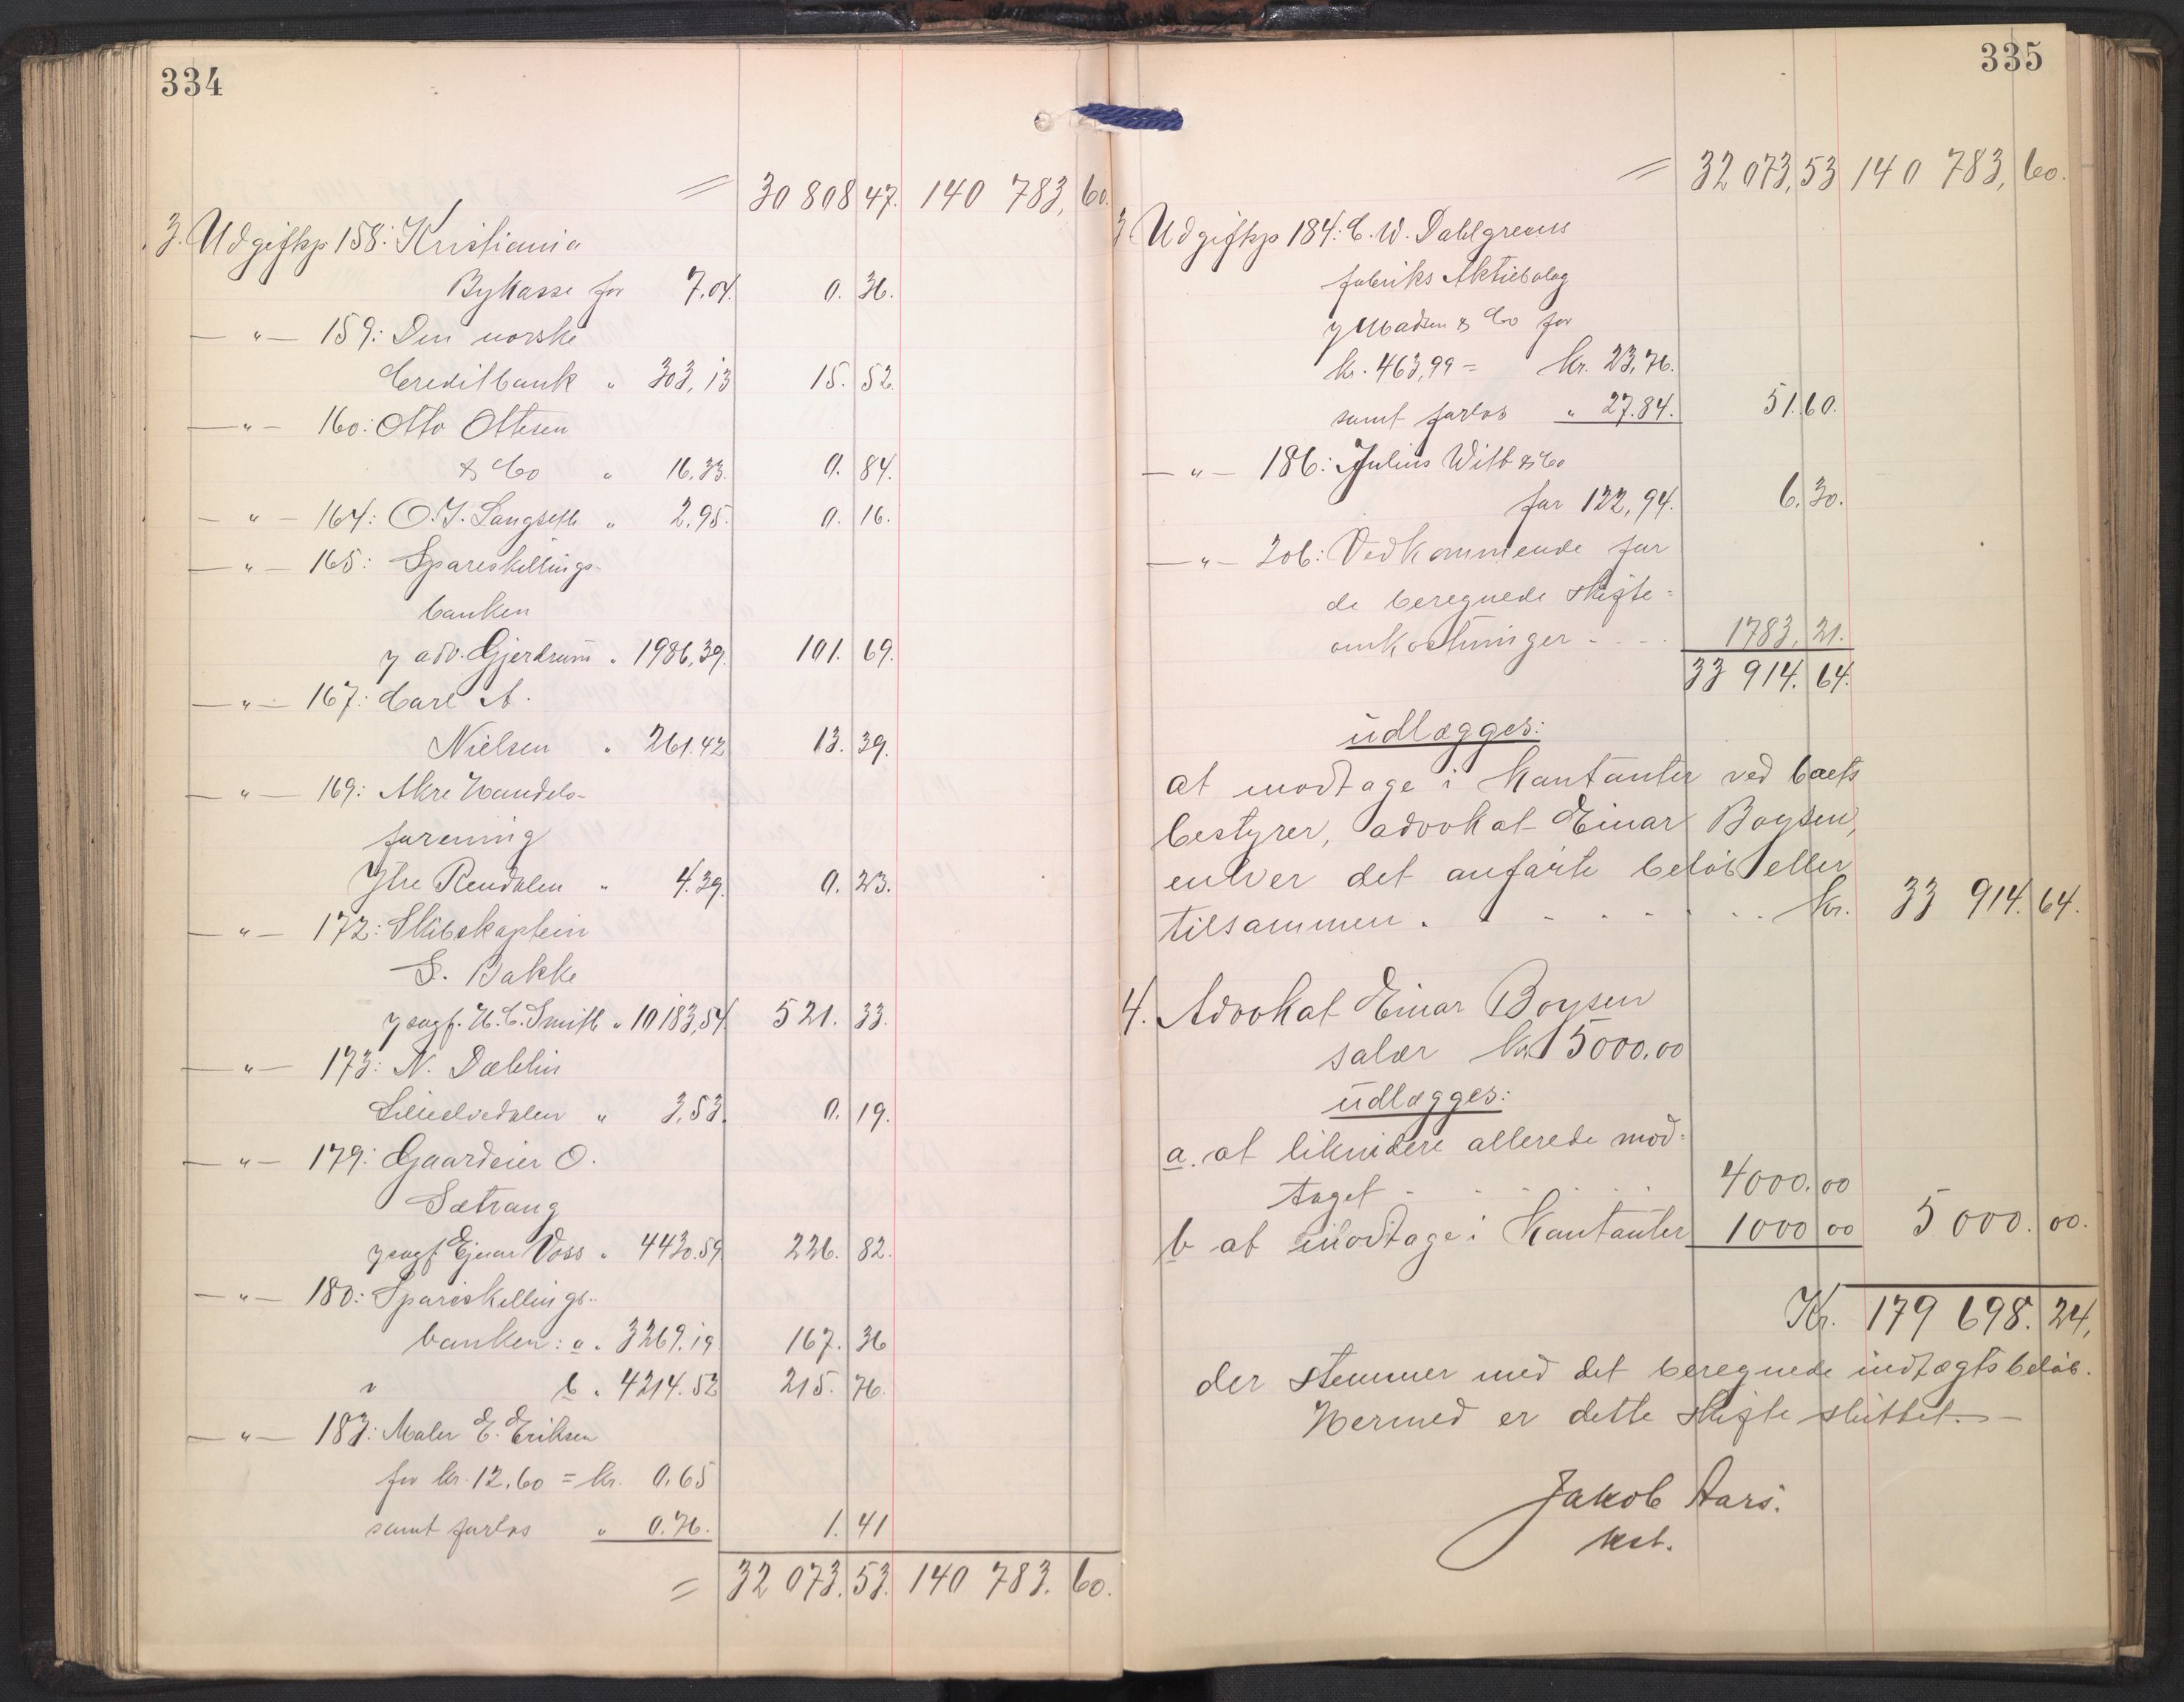 334
= 30 808 47. 140 783, 60.
3. Udgiftsp 158: Kristiania
Bykasse for 7,04. 0. 36.
— " — 159: Den norske
Creditbank " 303,13 15. 52.
— " — 160: Otto Ottesen
& Co " 16,33. 0. 84.
— " — 164: O. J. Langseth " 2,95. 0. 16.
— " — 165: Spareskillings-
banken
v adv. Gjerdrum " 1986,39. 101. 69.
— " — 167: Carl A.
Nielsen " 261.42 13. 39.
— " — 169: Akre Handels-
forening
Ytre Rendalen " 4.39. 0. 23.
— " — 172: Skibskaptein
S. Bakke
v sagf. H. C. Smith " 10183,54. 521. 33.
— " — 173: N. Dæhlin
Lilleelvedalen " 3,53. 0. 19.
— " — 179: Gaardeier O.
Sætrang
v sagf Ejnar Voss " 4430.59 226. 82.
— " — 180: Spareskillings-
banken: a " 3269.19 167. 36
" b " 4214.52 215. 76.
— " — 183: Maler E. Eriksen
for kr. 12.60 = kr. 0,65
samt forlos " 0.76. 1. 41
= 32 073. 53. 140 783. 60.
335
= 32 073,53 140 783, 60.
3. Udgiftsp 184: C. W. Dahlgrens
fabriks Aktiebolag
v Madsen & Co for
kr. 463,99 = kr. 23,76.
samt forlos " 27.84. 51.60.
— " — 186: Julius Witt & Co
for 122,94. 6.30.
— " — 206: Vedkommende for
de beregnede skifte=
omkostninger - - - - 1783, 21.
33 914. 64.
udlægges:
at modtage i kontanter ved boets
bestyrer, advokat Einar Boysen,
enhver det anførte beløb eller
tilsammen . - - - - - - kr. 33 914. 64.
4. Advokat Einar Boysen
salær kr 5000.00
udlægges:
a. at likvidere allerede mod=
taget - - - - - 4000.00
b at modtage i kontanter 1000 00 5 000. 00.
Kr. 179 698. 24,
der stemmer med det beregnede indtægtsbeløb.
Hermed er dette skifte sluttet. —
Jakob Aars.
kst.